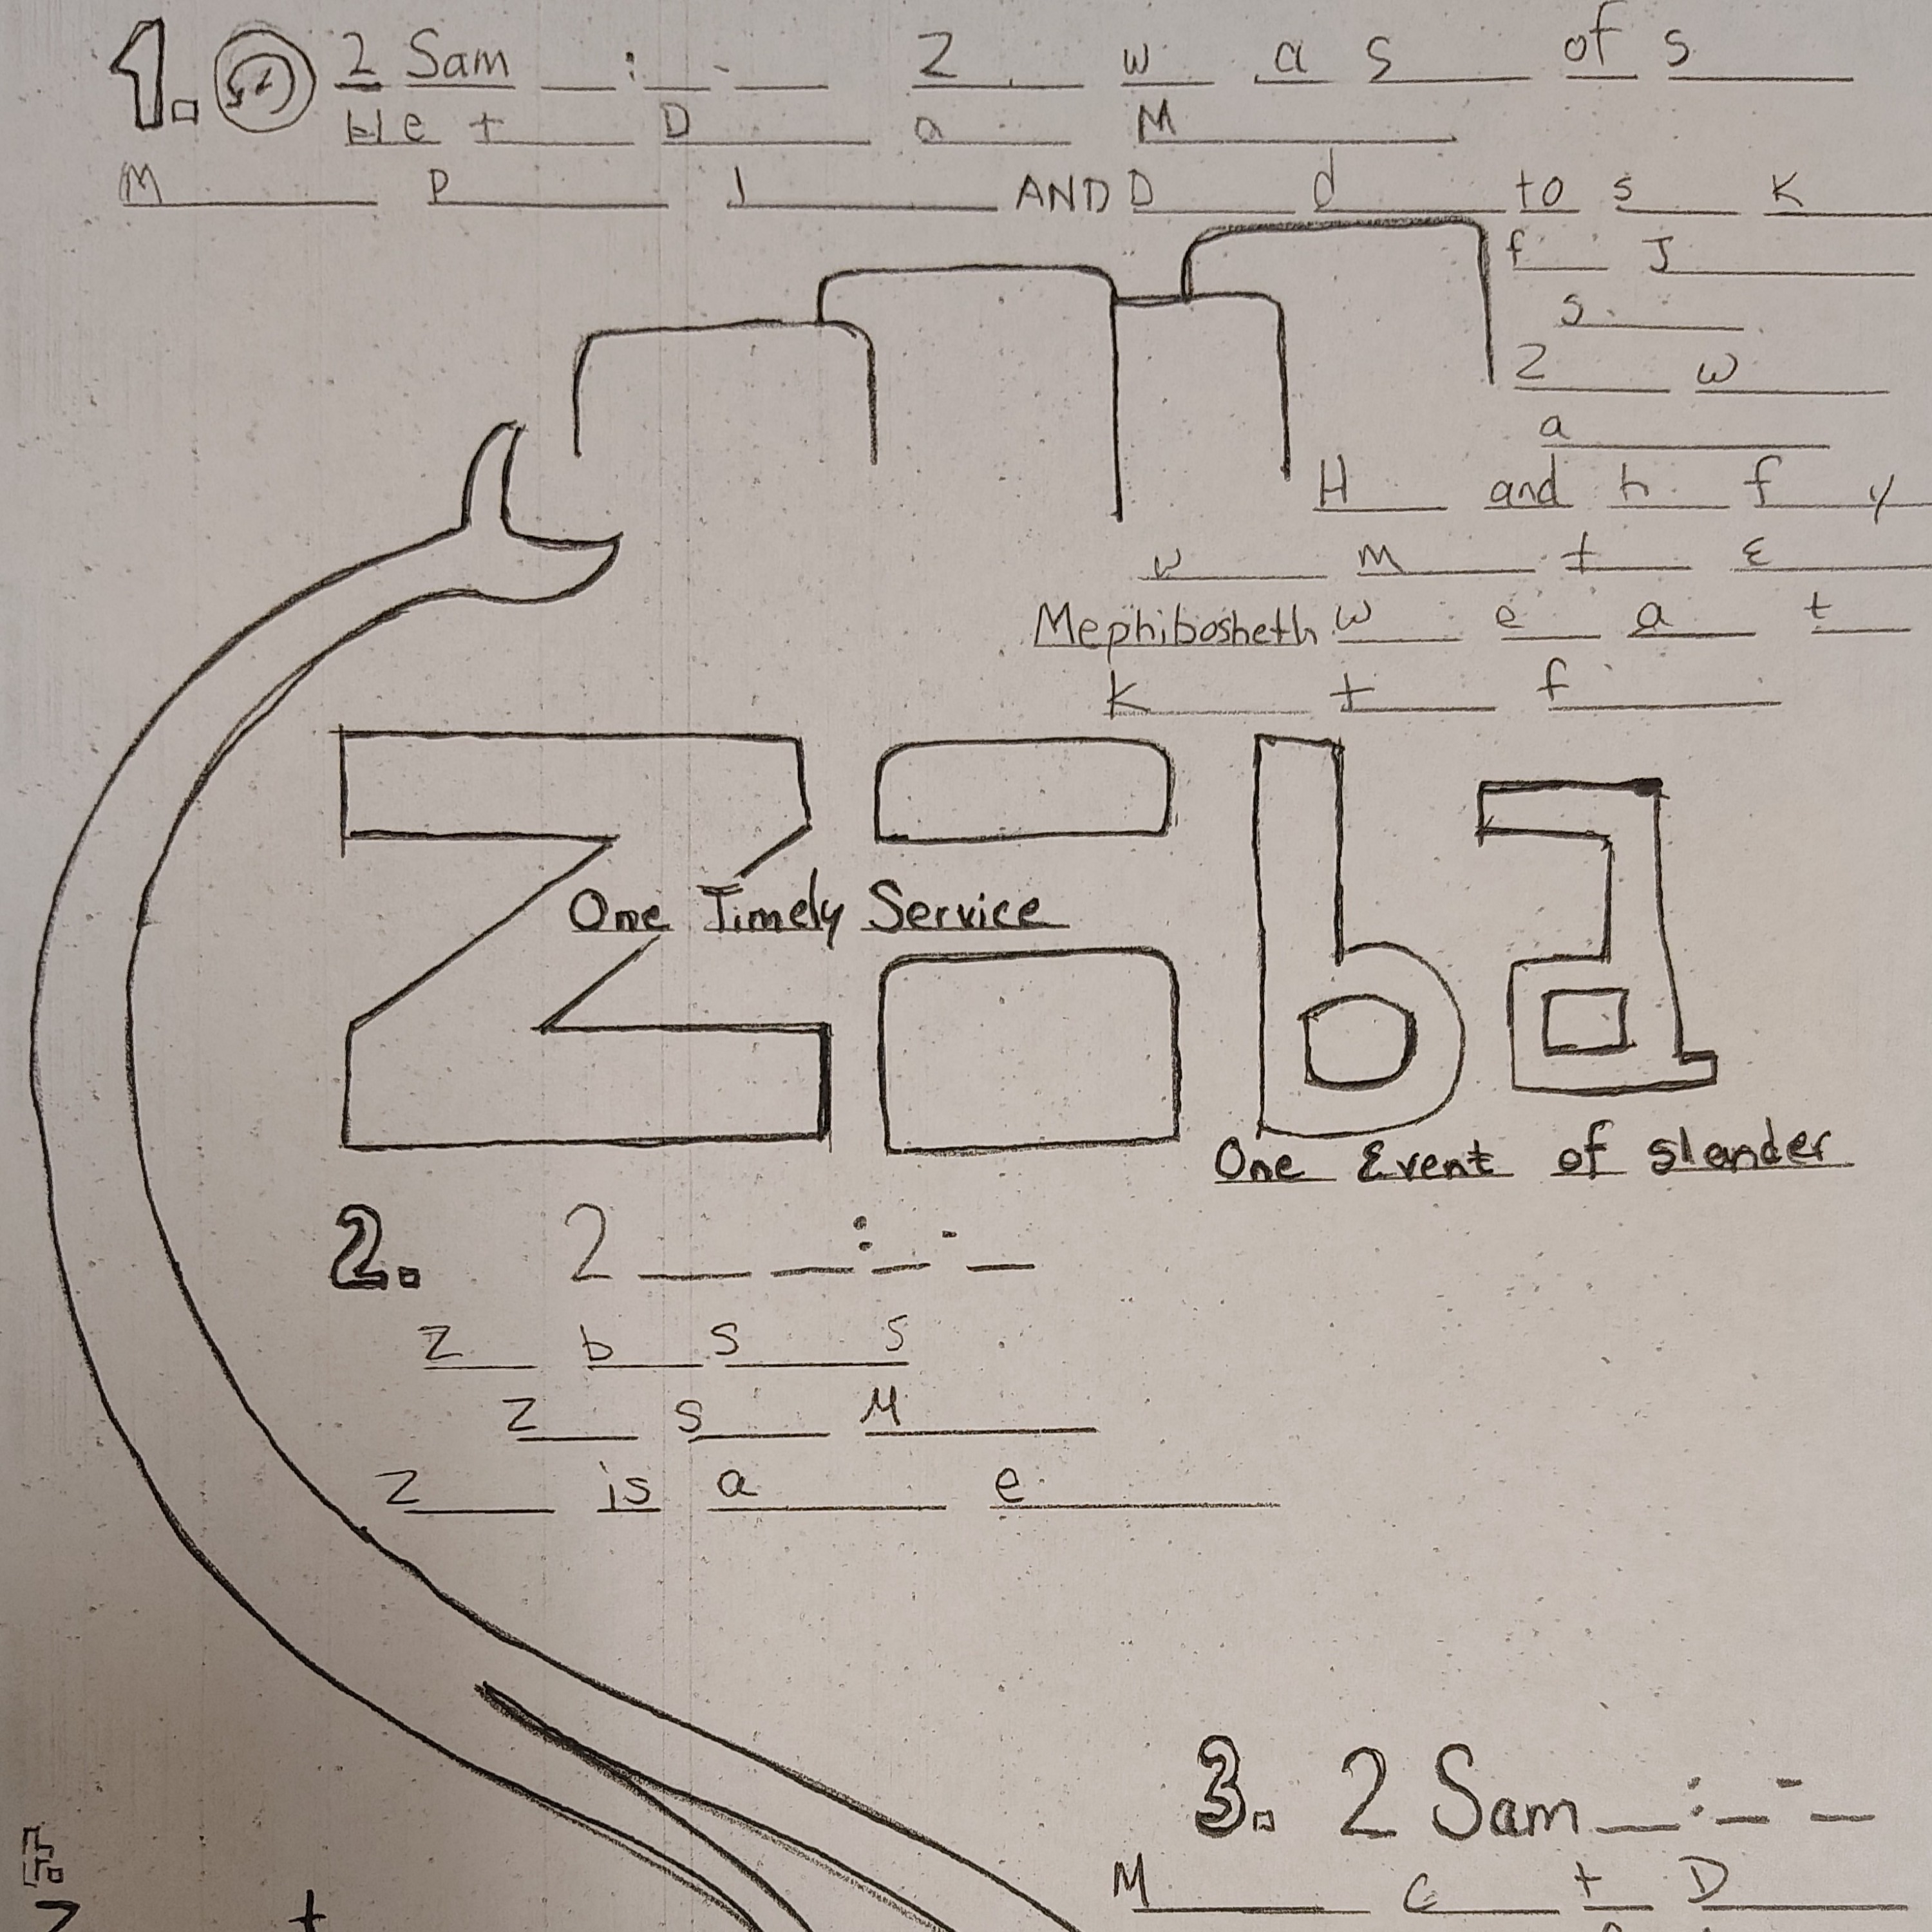 1. 2 Sam __ : __ - __ Z____ w__ a__ S____ of s____
He t____ D____ a____ M____
M____ P____ J____ AND D____ d____ to s____ K____
f____ J____
s____
Z____ w____
a____
H____ and h____ f____ y____
w____ m____ t____ E____
Mephibosheth w____ e____ a____ t____
K____ t____ f____
Ziba
One Timely Service
One Event of slander
2. 2 ____ ____ : __ - __
Z____ b____ S____ S
Z____ S____ M____
Z____ is a____ e____
3. 2 Sam __ : __ - __
M____ C____ t____ D____